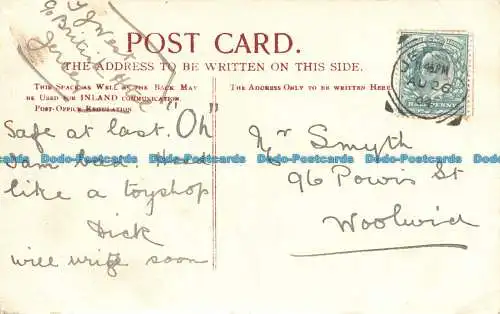 POST CARD.
THE ADDRESS TO BE WRITTEN ON THIS SIDE.
THIS SPACE AS WELL AS THE BACK MAY
BE USED FOR INLAND COMMUNICATION.
POST-OFFICE REGULATION
THE ADDRESS ONLY TO BE WRITTEN HERE
HALFPENNY
Safe at last. "Oh"
like a toyshop
Dick
will write soon
Mr Smyth
96 Powis St
Woolwich
Dodo-Postcards Dodo-Postcards Dodo-Postcards Dodo-Postcards Dodo-Postcards